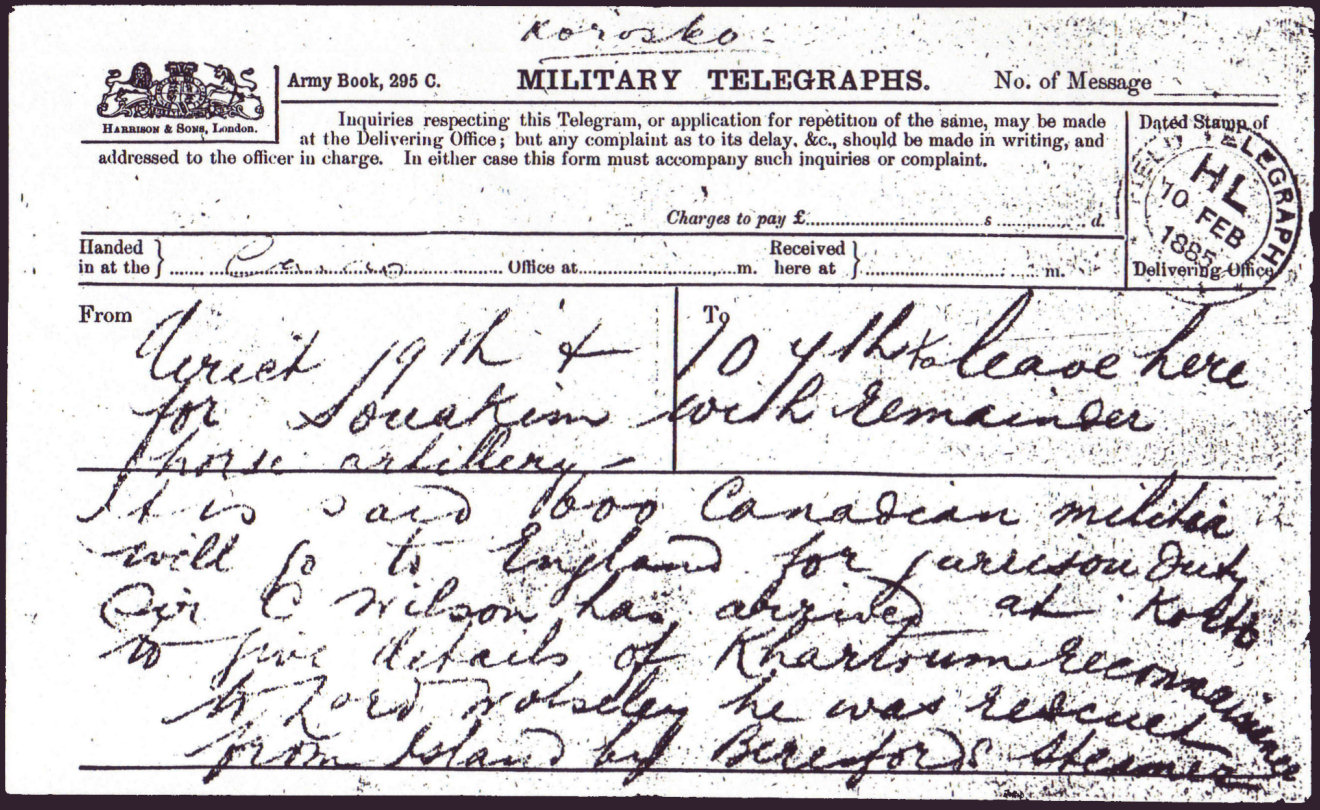 Korosko
Army Book, 295 C.
MILITARY TELEGRAPHS.
No. of Message
HARRISON & SONS, London.
Inquiries respecting this Telegram, or application for repetition of the same, may be made
at the Delivering Office; but any complaint as to its delay, &c., should be made in writing, and
addressed to the officer in charge. In either case this form must accompany such inquiries or complaint.
Dated Stamp of
TELEGRAPH
HL
10 FEB
1885
Delivering Office
Charges to pay £ s d.
Handed
in at the } Cairo Office at m.
Received
here at } m.
From
To
19th & 20th to leave here
for Souakim with remainder
horse artillery -
It is said 1600 Canadian militia
will go to England for garrison duty
Sir C Wilson has arrived at Korti
to give details of Khartoum reconnaissance
to Lord Wolseley he was rescued
from Island by Beresfords steamer